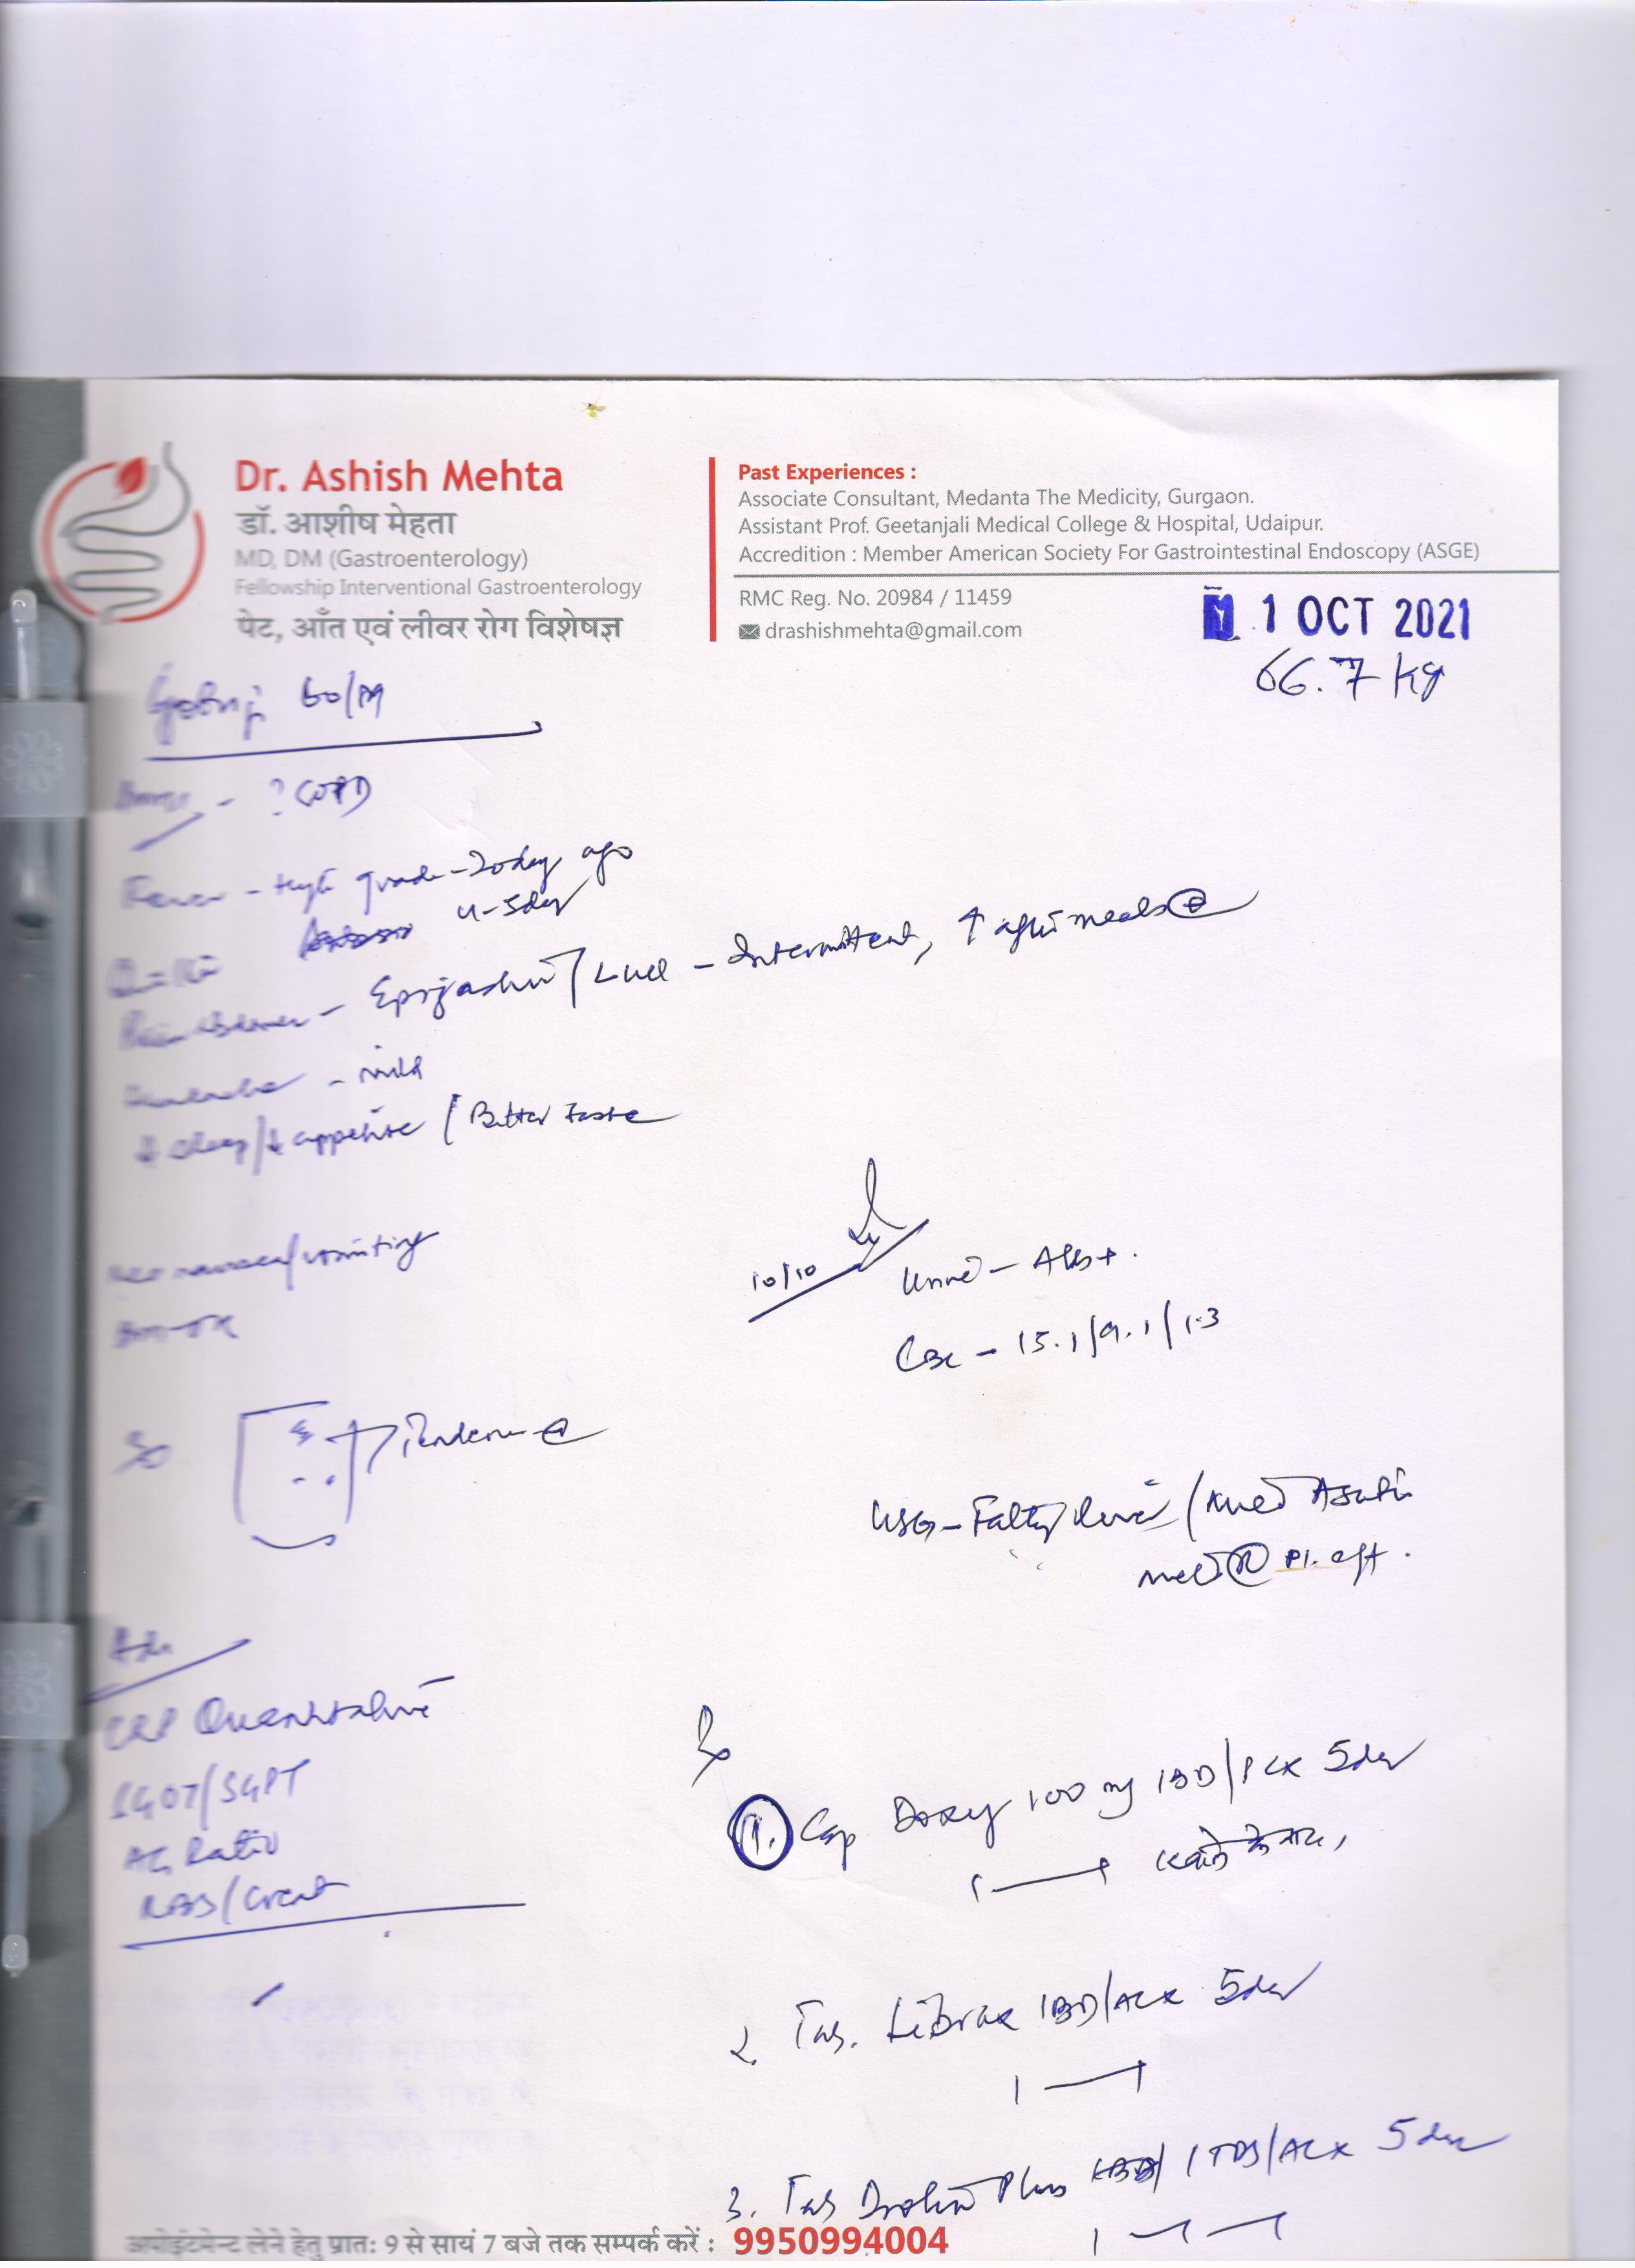 Dr. Ashish Mehta
डॉ. आशीष मेहता
MD, DM (Gastroenterology)
Fellowship Interventional Gastroenterology
पेट, आँत एवं लीवर रोग विशेषज्ञ
Past Experiences :
Associate Consultant, Medanta The Medicity, Gurgaon.
Assistant Prof. Geetanjali Medical College & Hospital, Udaipur.
Accreditation : Member American Society For Gastrointestinal Endoscopy (ASGE)
RMC Reg. No. 20984 / 11459
drashishmehta@gmail.com
1 OCT 2021
66.7 kg
60/M
- ? COPD
Fever - high grade - 20 day ago
4-5 day
- Epigastric / LUQ - Intermittent, ↑ after meals ⊕
Headache - mild
↓ sleep/↓ appetite / Bitter taste
nausea/vomiting
10/10
Urine - Alb +.
CBC - 15.1/9.1/1.3
Tenderness ⊕
USG - Fatty liver / Mild Ascites
mild Ⓡ Pl. eff.
Adv
CRP Quantitative
SGOT/SGPT
AG Ratio
RBS/Creat
Rx
1. Cap Doxy 100 mg 1BD/PC x 5day
1 — 1 खाने के बाद,
2. Tab. Librax 1BD/AC x 5day
1 — 1
3. Tab Drotin Plus 1TDS/AC x 5day
1 — 1 — 1
अपोइंटमेन्ट लेने हेतु प्रातः 9 से सायं 7 बजे तक सम्पर्क करें : 9950994004